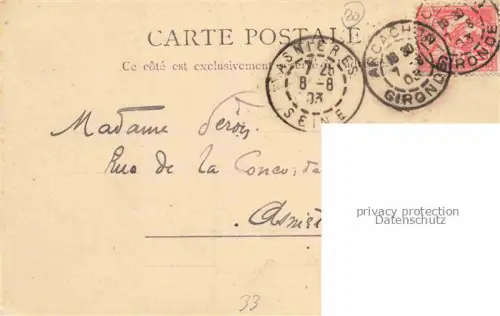 20
CARTE POSTALE
Ce côté est exclusivement
ASNIERES
7 25
8-8
03
SEINE
ARCACHON
7-8
03
GIRONDE
GIRONDE
Madame
Rue de la Concorde
Asniè
privacy protection
Datenschutz
33